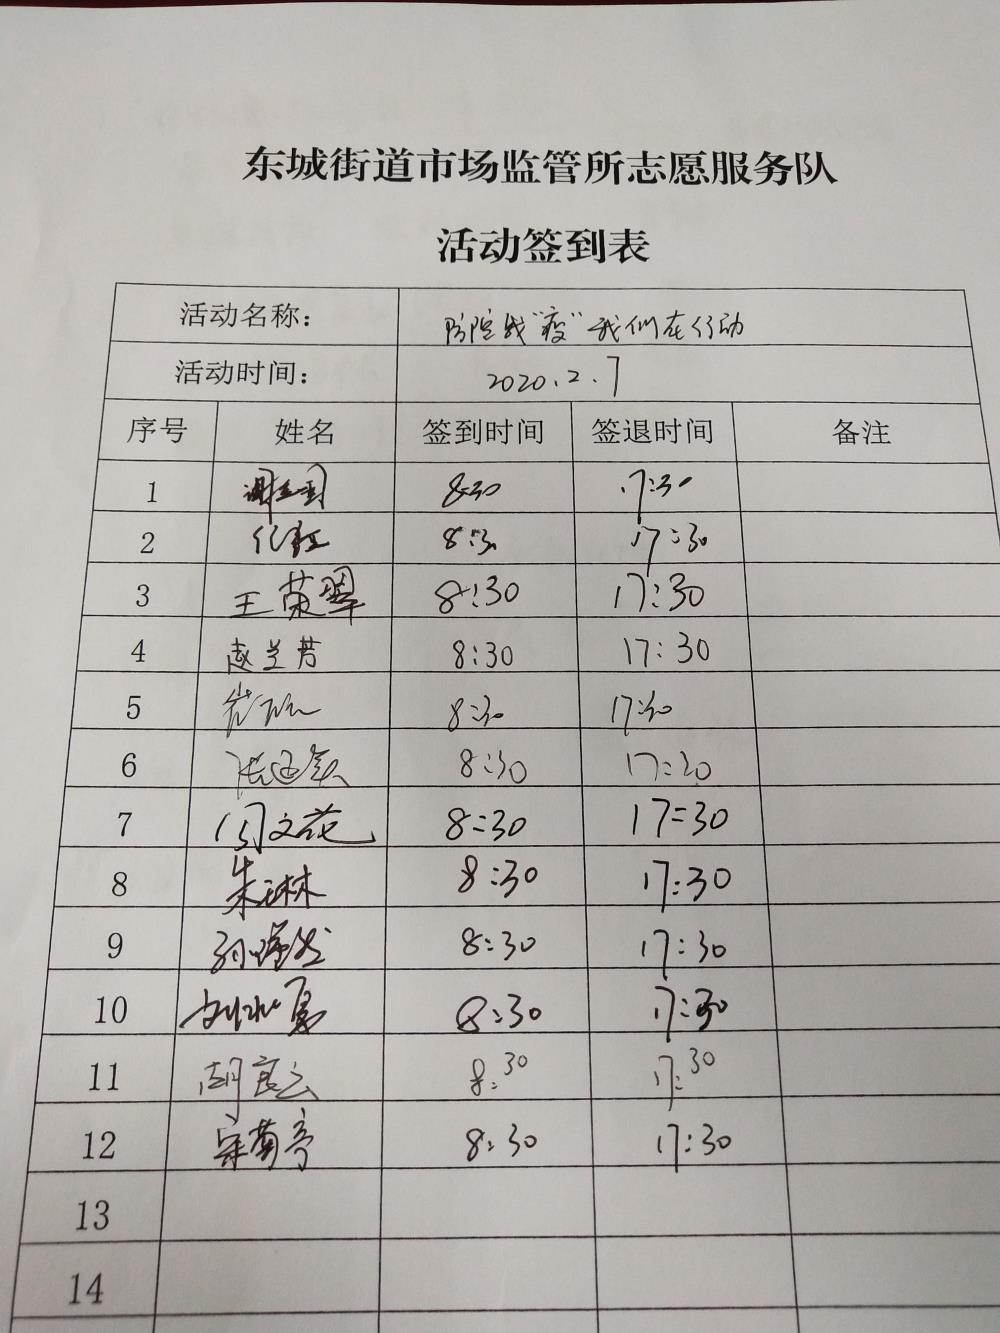 东城街道市场监管所志愿服务队
活动签到表
活动名称： 防院战"疫"我们在行动
活动时间： 2020.2.7
序号 姓名 签到时间 签退时间 备注
1 8:30 17:30
2 8:30 17:30
3 王荣翠 8:30 17:30
4 赵兰芳 8:30 17:30
5 8:30 17:30
6 8:30 17:30
7 闫文花 8:30 17:30
8 朱琳琳 8:30 17:30
9 8:30 17:30
10 8:30 17:30
11 胡良云 8:30 17:30
12 宋菊亭 8:30 17:30
13
14